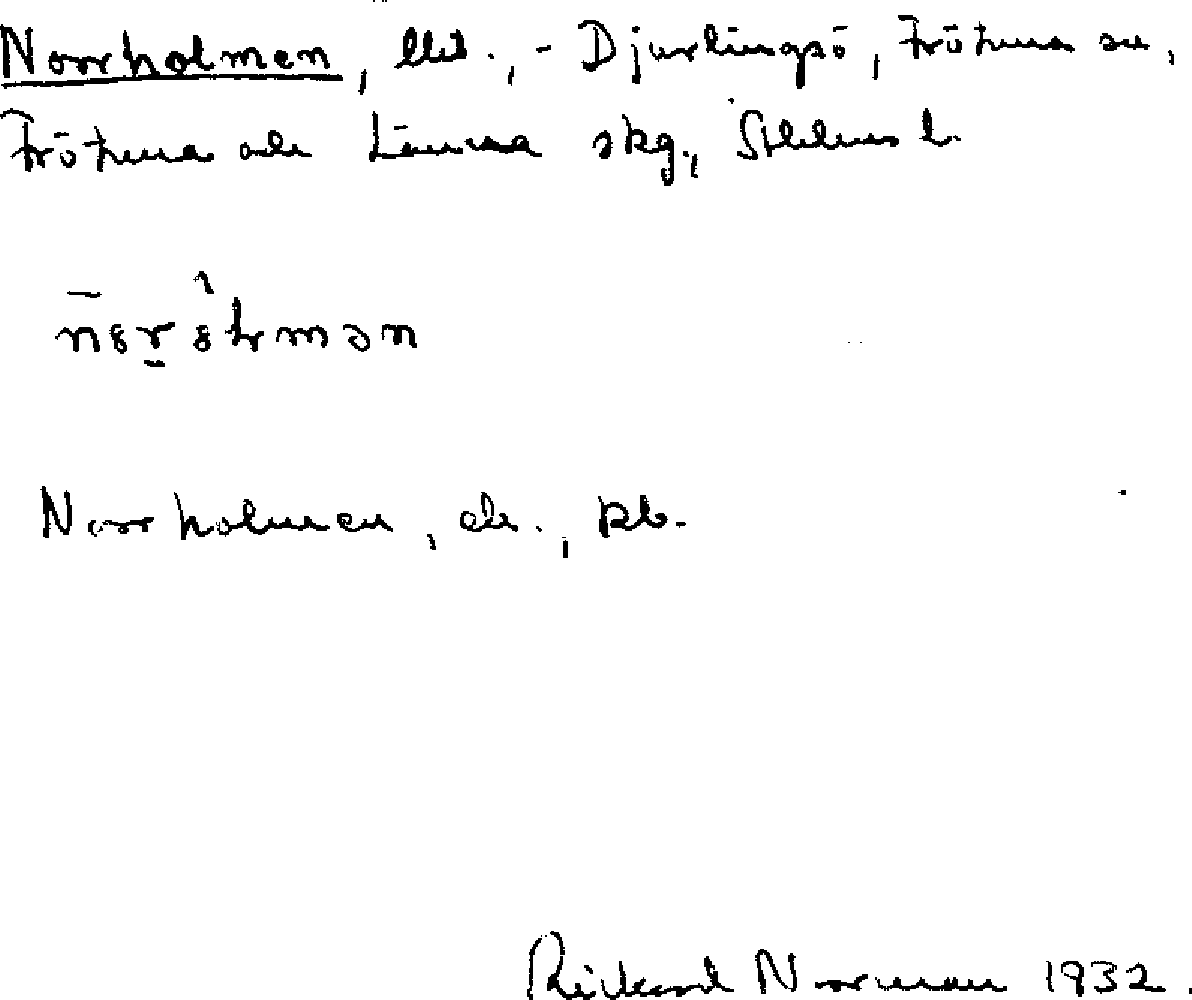 Norrholmen, –Djurlingsö, Frötuna sn,
Frötuna och Länna skg., Sthlms l.
Norrholmen, ek.
Rickard Norman 1932.